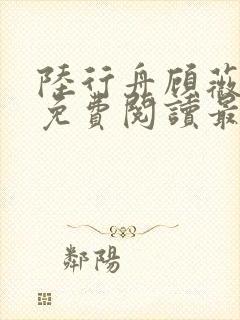 陸行舟顧薇
免費閱讀最
鄰陽